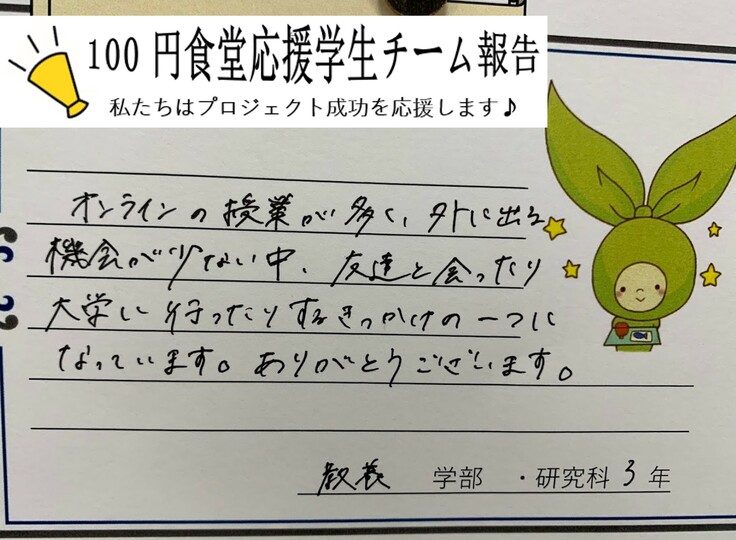 100円食堂応援学生チーム報告
私たちはプロジェクト成功を応援します♪
オンラインの授業が多く、外に出る
機会が少ない中、友達と会ったり
大学に行ったりするきっかけの一つに
なっています。ありがとうございます。
教養 学部 ・研究科 3 年